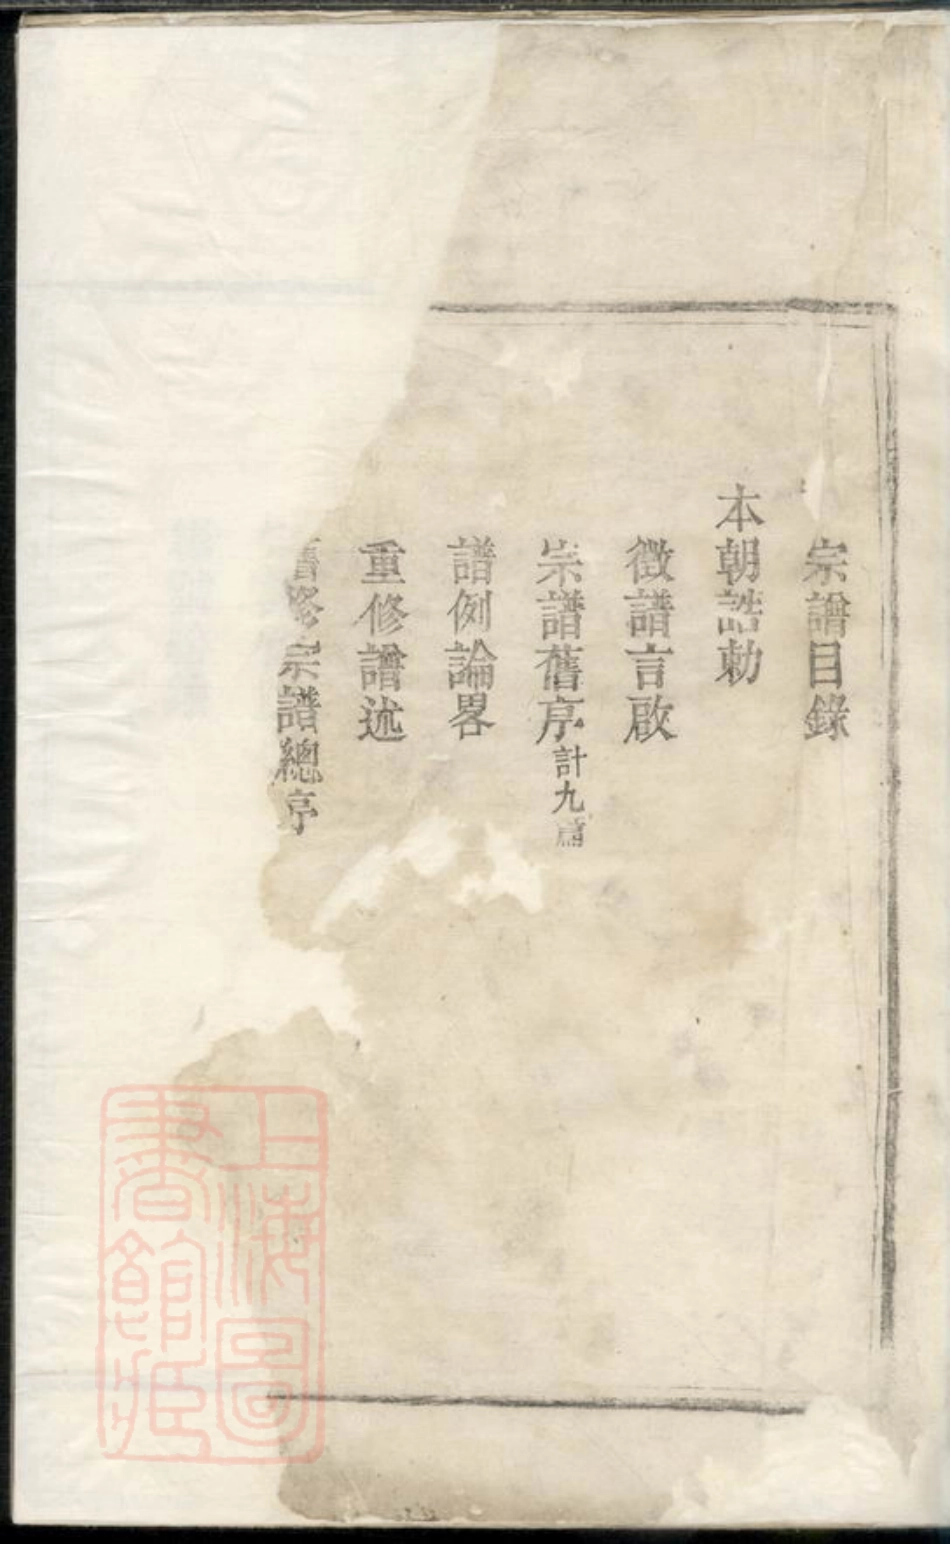 宗譜目錄
本朝誥勅
徵譜言啟
宗譜舊序計九篇
譜例論畧
重修譜述
舊修宗譜總序
上海圖書館藏